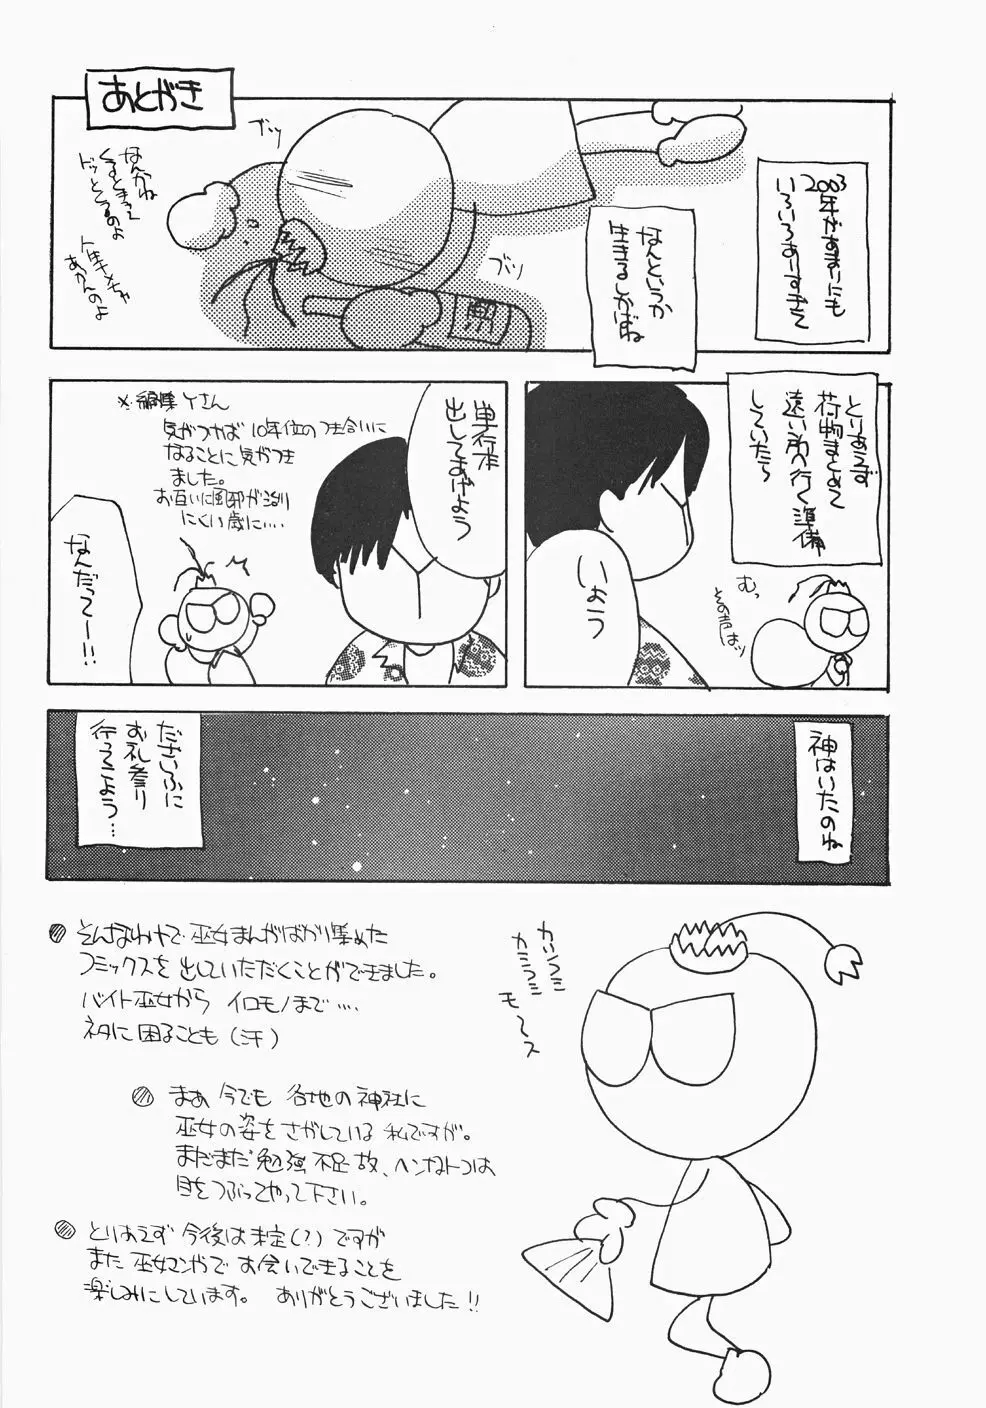 あとがき
2003年があまりにも
いろいろありすぎて
なんというか
生きるしかばね
ブツ
ブツ
なんかね
くるときって
ドッとくるのよ
あかんのよ
とりあえず
荷物まとめて
遠い所へ行く準備
していたら
むっ
その声はっ
いよう
単行本
出してあげよう
※編集Yさん
気がつけば10年位のつき合いに
なることに気がつき
ました。
お互いに風邪が治り
にくい歳に‥‥
なんだってー!!
神はいたのね
だざいふに
お礼参り
行ってこよう…
そんなわけで巫女まんがばかり集めた
コミックスを出していただくことができました。
バイト巫女から イロモノまで‥‥
ネタに困ることも(汗)
まあ今でも 各地の神社に
巫女の姿をさがしている私ですが。
まだまだ勉強不足故、ヘンなトコは
目をつぶってやって下さい。
とりあえず今後は未定(?)ですが
また巫女マンガでお会いできることを
楽しみにしています。 ありがとうございました!!